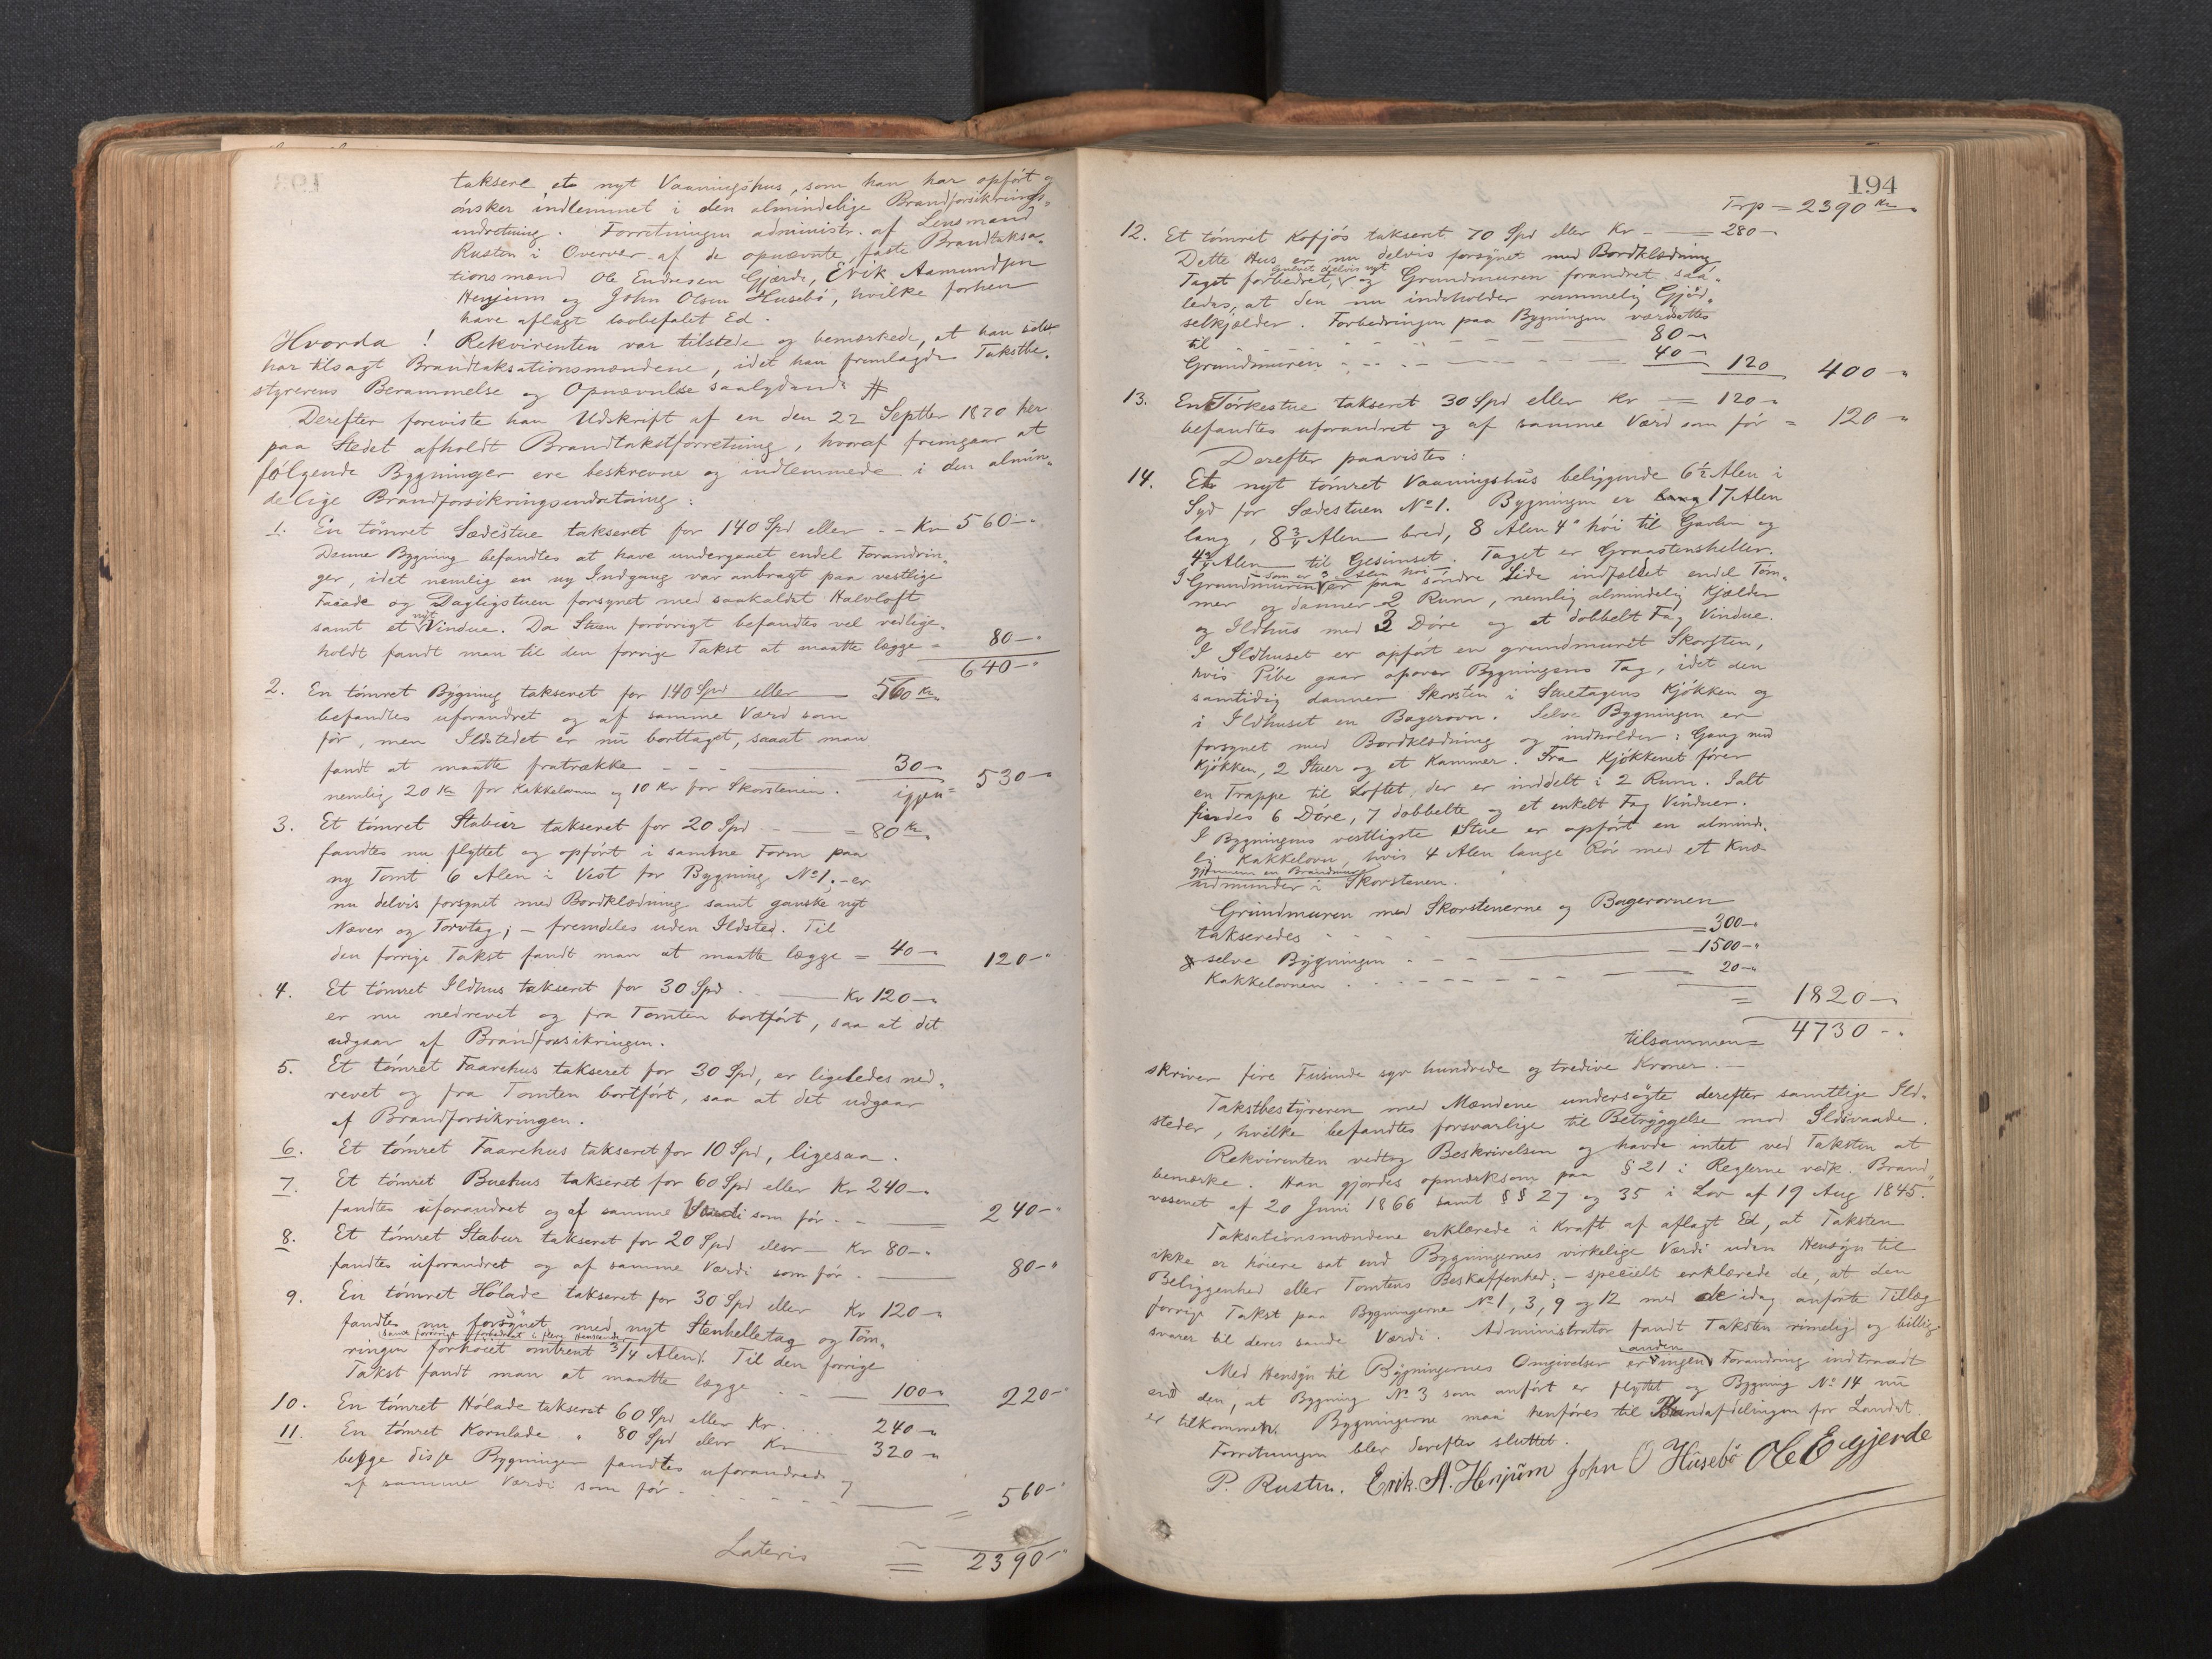 taksere et nyt Vaaningshus, som han har opført og
ønsker indlemmet i den almindelige Brandforsikrings-
indretning. Forretningen administr. af Lensmand
Rusten i Overvær af de opnævnte, faste Brandtaksa-
tionsmænd Ole Endresen Gjærde, Erik Aamundsen
Henjum og John Olsen Husebø, hvilke forhen
have aflagt lovbefalet Ed.
Hvorda! Rekvirenten var tilstede og bemærkede, at han selv
har tilsagt Brandtaksationsmændene, idet han fremlagde Takstbe-
styrerens Berammelse og Opnævnelse saalydende #
Derefter foreviste han Udskrift af en den 22 Septbr 1870 her
paa Stedet afholdt Brandtakstforretning, hvoraf fremgaar at
følgende Bygninger ere beskrevne og indlemmede i den almin-
delige Brandforsikringsindretning:
1. En tømret Sædestue takseret for 140 Spd eller - - Kr 560-"
Denne Bygning befandtes at have undergaaet endel Forandrin-
ger, idet nemlig en ny Indgang var anbragt paa vestlige
Facade og Dagligstuen forsynet med saakaldet Halvloft
samt et nyt Vindue. Da Stuen forøvrigt befandtes vel vedlige-
holdt fandt man til den forrige Takst at maatte lægge = 80-"
640-"
2. En tømret Bygning takseret for 140 Spd eller — 560 Kr
befandtes uforandret og af samme Værd som
før, men Ildstedet er nu borttaget, saaat man
fandt at maatte fratrække - - - 30-"
nemlig 20 Kr for Kakkelovnen og 10 Kr for Skorstenen. igjen = 530-"
3. Et tømret Stabur takseret for 20 Spd - — = 80 Kr
fandtes nu flyttet og opført i samme Form paa
ny Tomt 6 Alen i Vest for Bygning No 1, - er
nu delvis forsynet med Bordklædning samt ganske nyt
Næver og Torvtag; - fremdeles uden Ildsted. Til
den forrige Takst fandt man at maatte lægge = 40-" 120-"
4. Et tømret Ildhus takseret for 30 Spd - - — Kr 120-"
er nu nedrevet og fra Tomten bortført, saa at det
udgaar af Brandforsikringen.
5. Et tømret Faarehus takseret for 30 Spd, er ligeledes ned-
revet og fra Tomten bortført, saa at det udgaar
af Brandforsikringen.
6. Et tømret Faarehus takseret for 10 Spd, ligesaa.
7. Et tømret Buehus takseret for 60 Spd eller Kr 240-"
fandtes uforandret og af samme Værdi som før - - — 240-"
8. Et tømret Stabur takseret for 20 Spd eller — Kr 80-"
fandtes uforandret og af samme Værdi som før - — 80-"
9. En tømret Hølade takseret for 30 Spd eller Kr 120-"
fandtes nu forsynet med nyt Stenhelletag og Tøm-
samt forøvrigt forbedret i flere Henseender
ringen forhøiet omtrent 3/4 Alen. Til den forrige
Takst fandt man at maatte lægge - - — 100-" 220-"
10. En tømret Hølade takseret 60 Spd eller Kr - - - 240-"
11. En tømret Kornlade " 80 Spd eller Kr — 320-"
begge disse Bygninger fandtes uforandrede og
af samme Værdi som før - - - - — = 560-"
Lateris = 2390-"
194
Trp = 2390 Kr
12. Et tømret Kofjøs takseret 70 Spd eller Kr - — = 280-"
Dette Hus er nu delvis forsynet med Bordklædning
Gulvet delvis nyt
Taget forbedret, og Grundmuren forandret saa-
ledes, at den nu indeholder rummelig Gjød-
selkjælder. Forbedringen paa Bygningen værdsattes
til - - - - - — 80-"
Grundmuren - - - - — 40-" 120 400-"
13. En Tørkestue takseret 30 Spd eller Kr — = 120-"
befandtes uforandret og af samme Værd som før = 120-"
Derefter paavistes:
14. Et nyt tømret Vaaningshus beliggende 6½ Alen i
Syd for Sædestuen No 1. Bygningen er lang 17 Alen
lang, 8 3/4 Alen bred, 8 Alen 4" høi til Gavlen og
4 3/4 Alen til Gesimset. Taget er Graastensheller.
I Grundmuren som er 3 Alen høi er paa søndre Side indfældet endel Tøm-
mer og danner 2 Rum, nemlig almindelig Kjælder
og Ildhus med 3 Døre og et dobbelt Fag Vindue.
I Ildhuset er opført en grundmuret Skorsten,
hvis Pibe gaar opover Bygningens Tag, idet den
samtidig danner Skorsten i Stuetagens Kjøkken og
i Ildhuset en Bagerovn. Selve Bygningen er
forsynet med Bordklædning og indholder: Gang med
Kjøkken, 2 Stuer og et Kammer. Fra Kjøkkenet fører
en Trappe til Loftet, der er inddelt i 2 Rum. Ialt
findes 6 Døre, 7 dobbelte og et enkelt Fag Vinduer.
I Bygningens vestligste Stue er opført en alminde-
lig Kakkelovn, hvis 4 Alen lange Rør med et Knæ
gjennem en Brandmur
udmunder i Skorstenen.
Grundmuren med Skorstenerne og Bagerovnen
takseredes - - - — = 300-"
selve Bygningen - - - — 1500-"
Kakkelovnen - - - - - — 20-"
= 1820-"
tilsammen = 4730-"
skriver fire Tusinde syv hundrede og tredive Kroner. -
Takstbestyreren med Mændene undersøgte derefter samtlige Ild-
steder, hvilke befandtes forsvarlige til Betryggelse mod Ildsvaade.
Rekvirenten vedtog Beskrivelsen og havde intet ved Taksten at
bemærke. Han gjordes opmærksom paa § 21 i Reglerne vedk. Brand-
vesenet af 20 Juni 1866 samt §§ 27 og 35 i Lov af 19 Aug 1845.
Taksationsmændene erklærede i Kraft af aflagt Ed, at Taksten
ikke er høiere sat end Bygningernes virkelige Værdi uden Hensyn til
Beliggenhed eller Tomtens Beskaffenhed; - specielt erklærede de, at den
forrige Takst paa Bygningerne No 1, 3, 9 og 12 med de idag anførte Tillæg
svarer til deres sande Værdi. Administrator fandt Taksten rimelig og billig
Med Hensyn til Bygningernes Omgivelser er ingen anden Forandring indtraadt
end den, at Bygning No 3 som anført er flyttet og Bygning No 14 nu
er tilkommen. Bygningerne maa henføres til Brandafdelingen for Landet.
Forretningen blev derefter sluttet.
P. Rusten. Erik. A. Henjum John O Husebø Ole E Gjerde